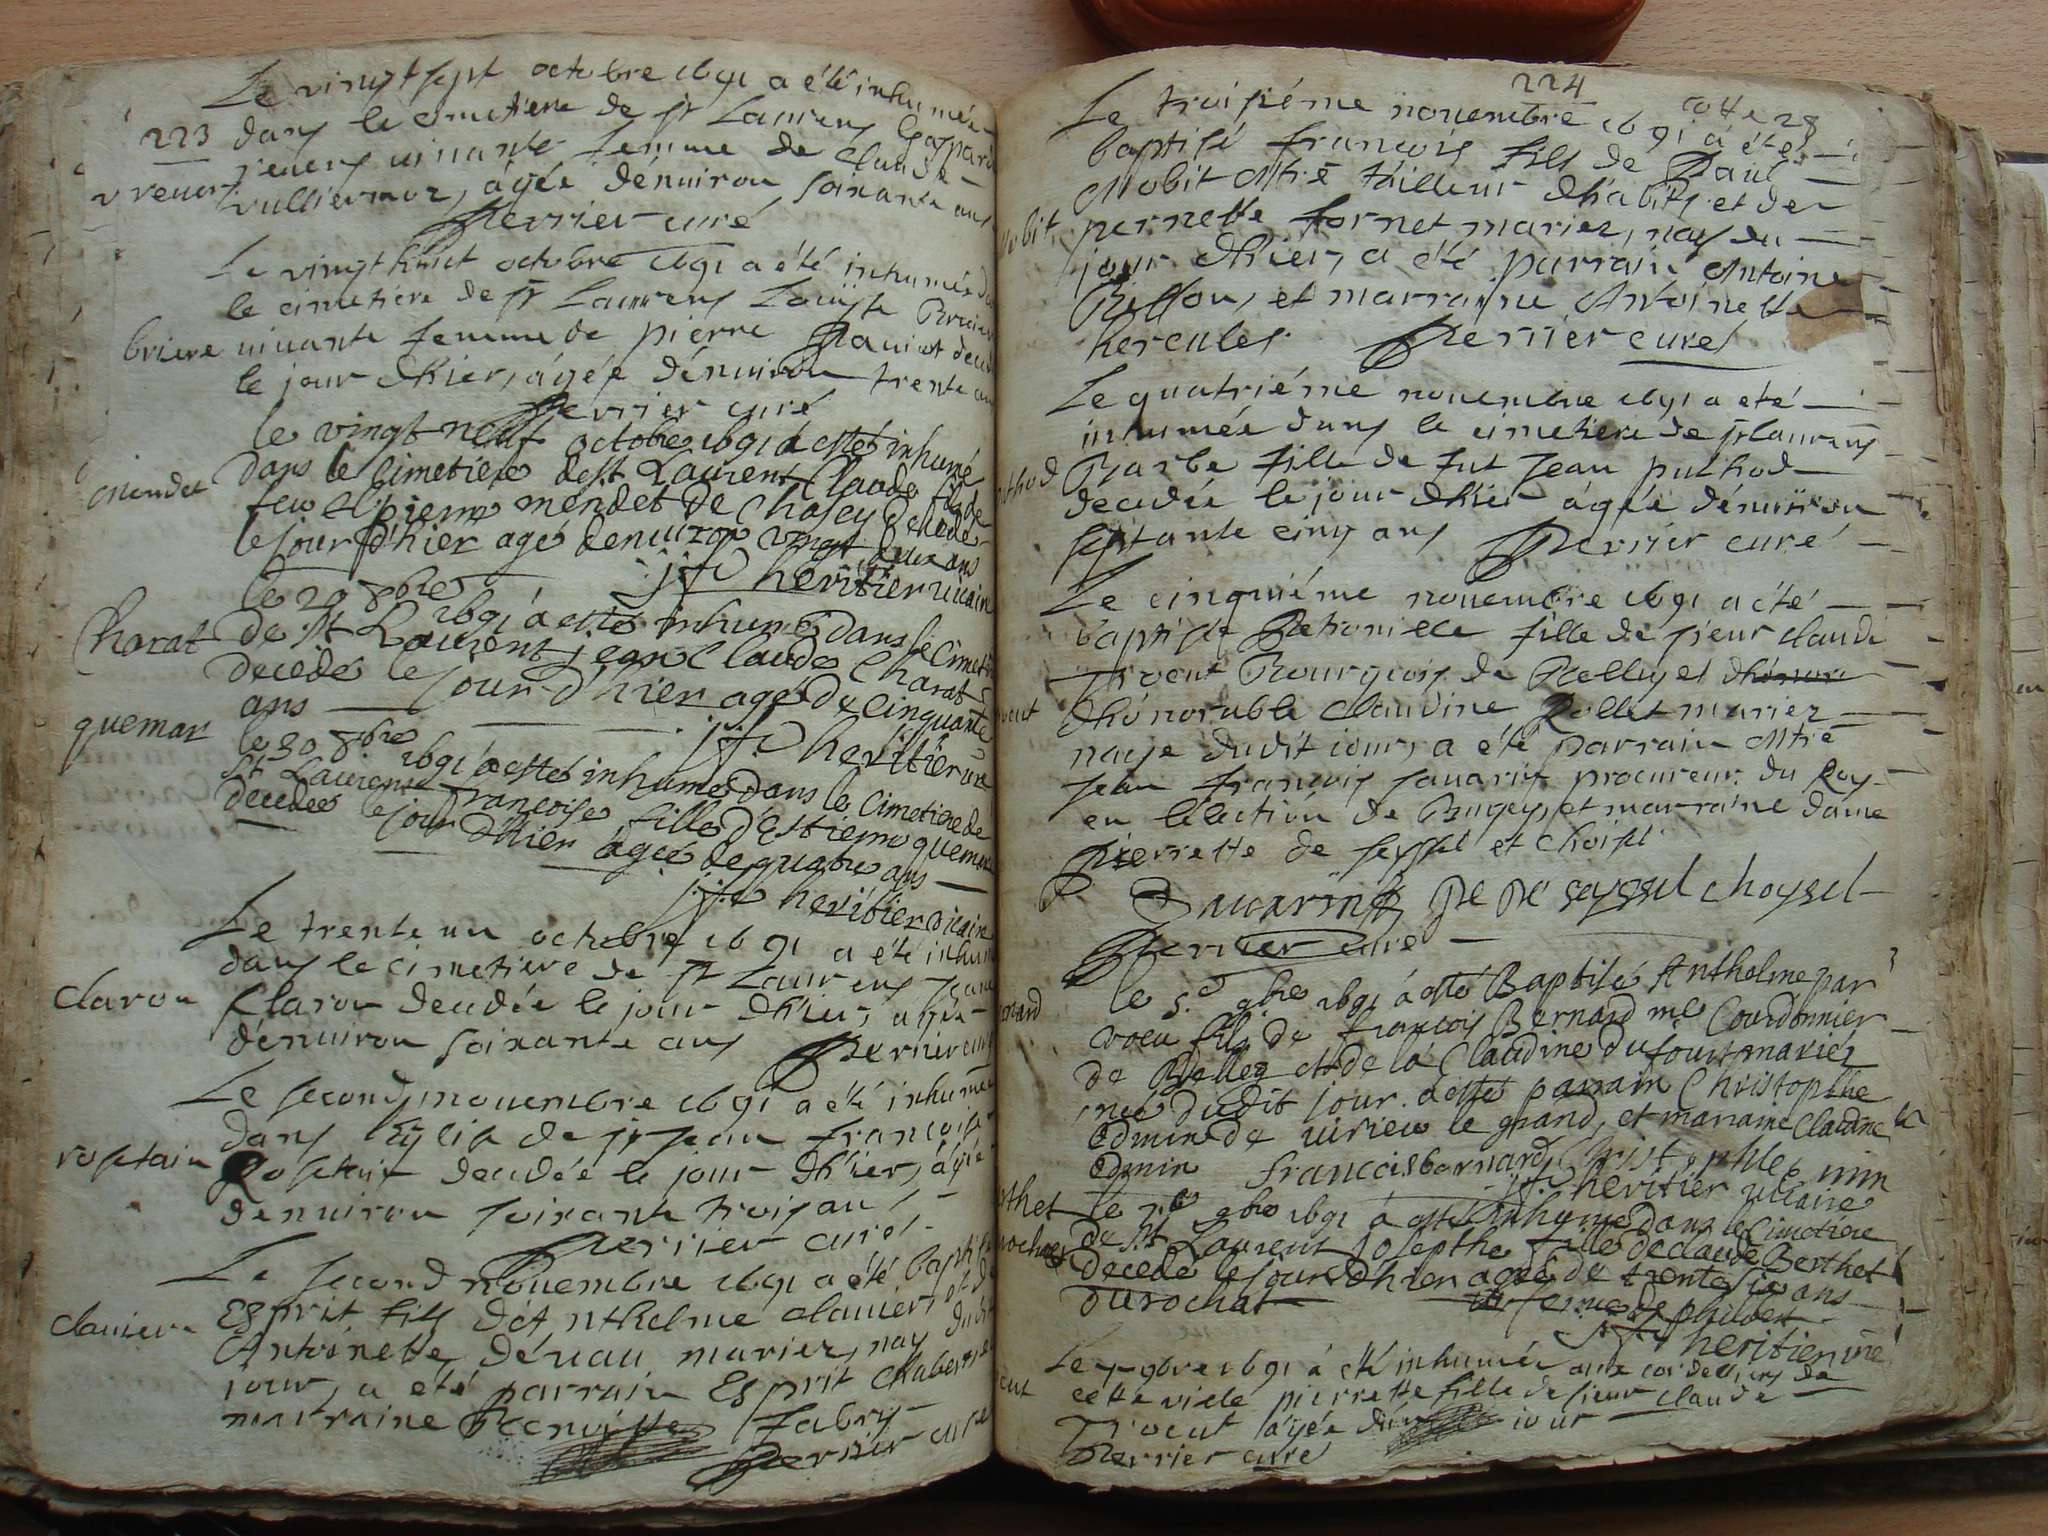 223
Le vingt sept octobre 1691 a été inhumée
dans le cimetiere de st Laurens Gaspard
reuers uiuante femme de Claude
vulliermoz, agée dénuiron soixante ans
Perrier curé
Le vingt huit octobre 1691 a été inhumée da
briere
le cimetiere de st Laurens Louise Briere
uiuante femme de pierre
le jour dhier, agée dénuiron trente an
Perrier curé
mendet
le vingt neuf octobre 1691 a esté inhumé
dans le Cimetiere de st Laurent Claude fils de
feu pierre mendet de Chasey decedé
le jour d'hier agé denuiron vingt deux ans
heritier uicaire
Charat
le 29 8bre 1691 a esté inhumé dans le Cimeti
de st Laurent jean Claude Charat
decedé le jour d'hier agé de cinquante
ans
heritier
quemar
le 30 8bre 1691 a esté inhumé dans le Cimetiere de
st Laurent francoise fille d'Estienne quemar
decedée le jour d'hier agée de quatre ans
heritier uicaire
Le trente un octobre 1691 a été inhum
dans le cimetiere de st Laurens
claron
Claron decedée le jour dhier, agée
dénuiron soixante ans Perrier curé
Le second nouembre 1691 a été inhumée
dans léglise de st jean francoise
rosetain
Rosetain decedée le jour dhier, agée
denuiron soixante trois ans
Perrier curé
Le second nouembre 1691 a été baptisé
clauier
Esprit fils dAnthelme clauier, et d
Antoinette déuau mariez, nay dud
jour, a été parrain Esprit
marraine Benoitte Fabry
Perrier curé
224
cotte 28
Le troisiéme nouembre 1691 a été
baptisé francois fils de Paul
Mobit Mtre tailleur dhabits et de
pernette fornet mariez, nay du
jour dhier, a été parrain Antoine
Billon, et marraine Antoinette
hercules Perrier curé
Le quatriéme nouembre 1691 a été
inhumée dans le cimetiere de st laurens
Barbe fille de fut jean puthod
decedée le jour dhier agée dénuiron
septante cinq ans Perrier curé
Le cinquiéme nouembre 1691 a été
baptisée Petronille fille de sieur claude
Trocut Bourgeois de Belley et
dhonorable claudine Rollet mariez
naye dudit jour, a été parrain Mtre
jean francois sauarin procureur du Roy
en lélection de Bugey, et marraine dame
pierrette de seyssel et choisel
Sauarin PE DE Seyssel choysel
Perrier curé
le 5e 9bre 1691 a esté Baptisé Anthelme par
voeu fils de francois Bernard me Courdonnier
de Belley et de la Claudine du four mariez
né dudit jour a esté parrain Christophle
Edmin de uirieu le grand, et maraine Claudine
Edmin francois bernard Cristophle
heritier uicaire
le 7e 9bre 1691 a esté Inhumé dans le Cimetiere
de st Laurent josepthe fille de claude Berthet
decedé le jour d'hier agée de trente six ans
durochat femme de philibert
heritier
Le 7 9bre 1691 a été inhumée aux cordeliers de
cette uille pierrette fille de sieur claude
Trocut agée jour
Perrier curé